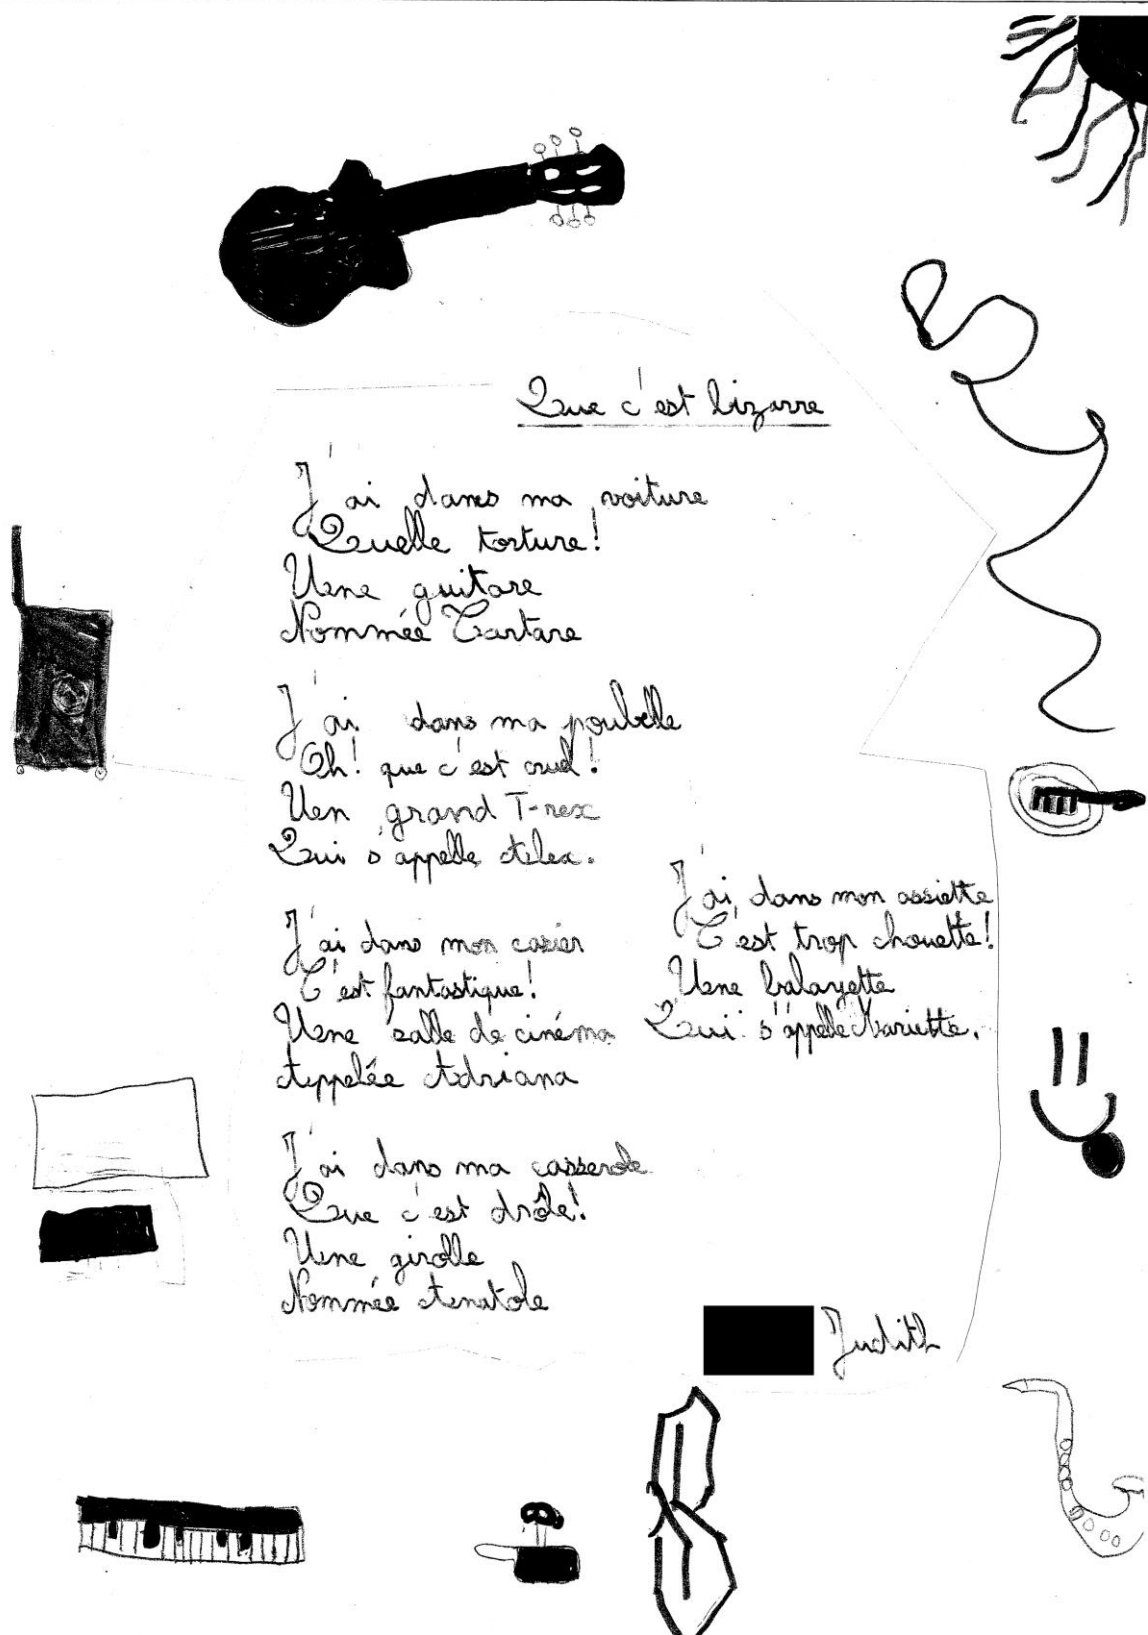 Que c'est bizarre
J'ai dans ma voiture
Quelle torture!
Une guitare
Nommée Tartare
J'ai dans ma poubelle
Oh! que c'est cruel!
Un grand T-rex
Qui s'appelle Alex.
J'ai dans mon casier
C'est fantastique!
Une salle de cinéma
Appelée Adriana
J'ai dans ma casserole
Que c'est drôle!
Une girolle
Nommée Anatole
J'ai dans mon assiette
C'est trop chouette!
Une balayette
Qui s'appelle Mariette.
Judith